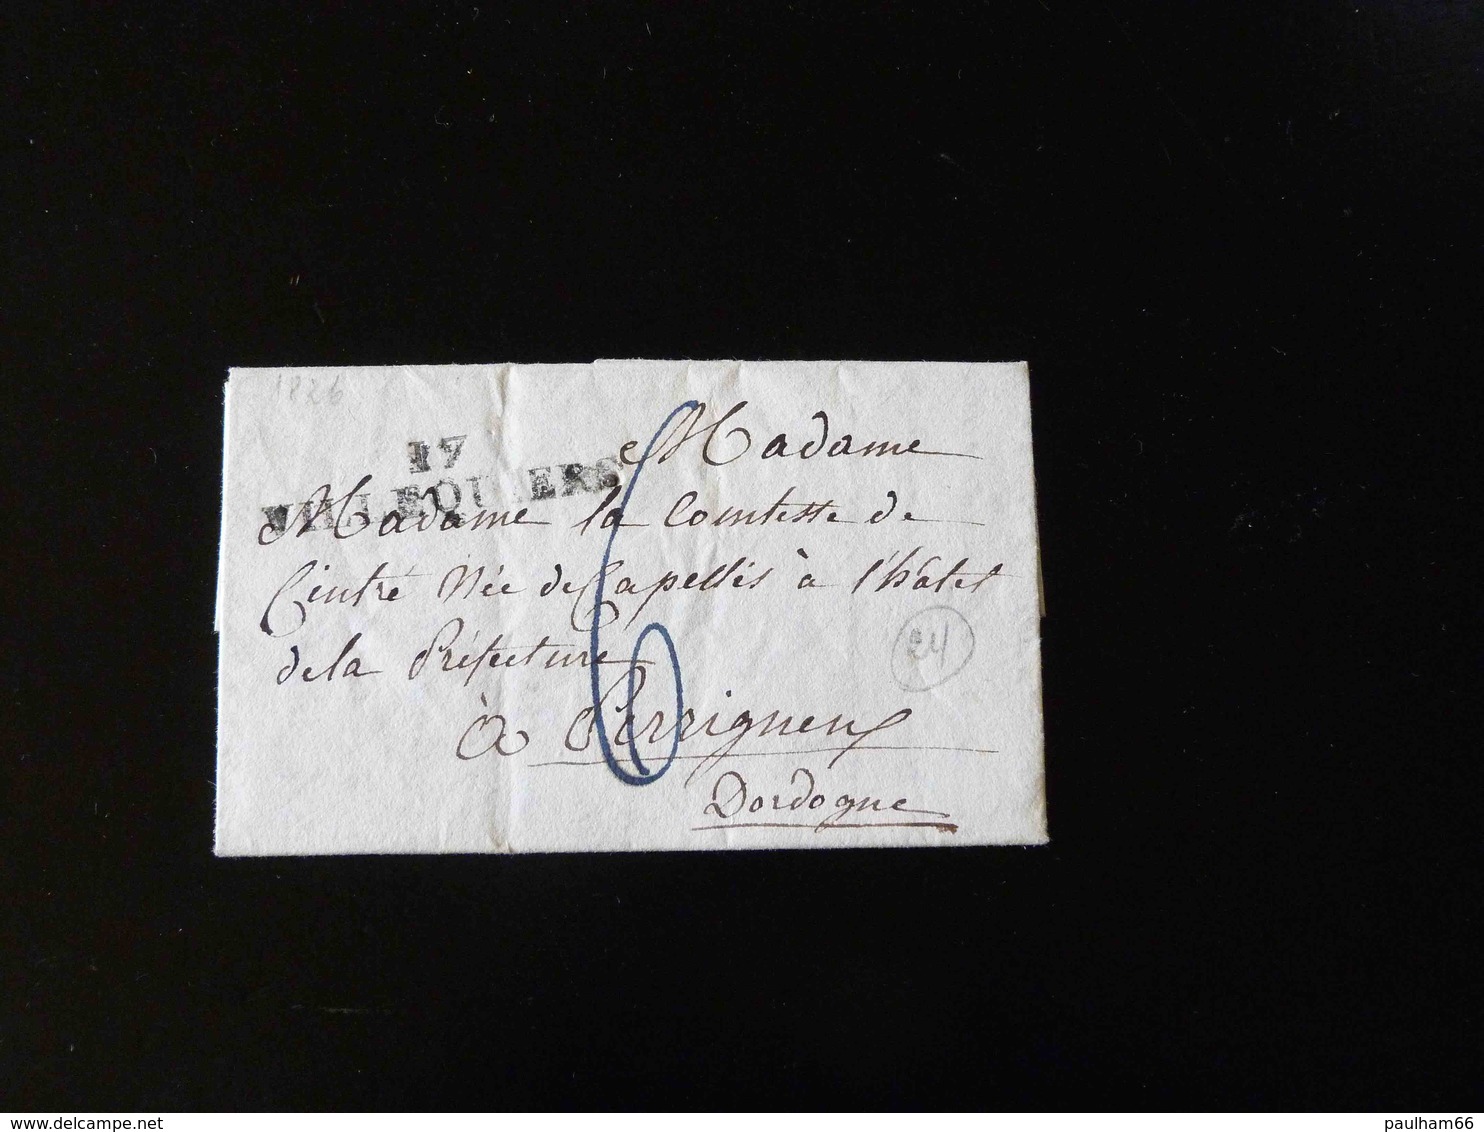 1826
17
VILLEQUIERS
Madame
Madame la Comtesse de
Cintré Née de Capellis à l'hôtel
de la Préfecture
6
24
à Perrigneux
Dordogne
paulham66